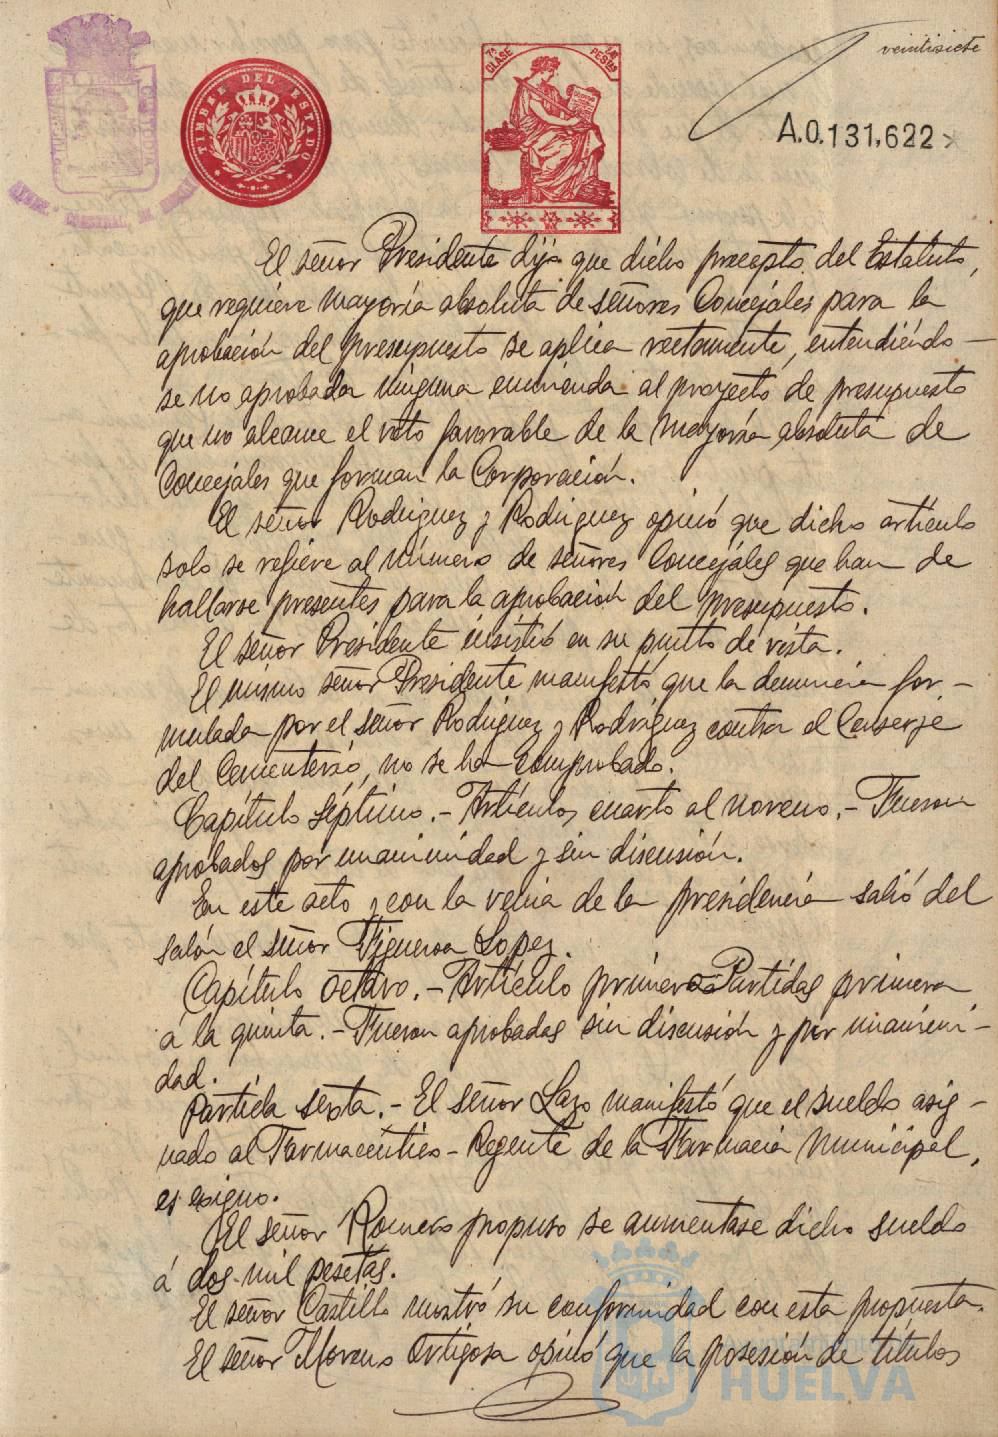 veintisiete
7ª CLASE
PESETAS
TIMBRE DEL ESTADO
A.0.131,622
El señor Presidente dijo que dicho precepto del Estatuto,
que requiere mayoría absoluta de señores Concejales para la
aprobación del presupuesto se aplica rectamente, entendiéndo—
se no aprobada ninguna enmienda al proyecto de presupuesto
que no alcance el voto favorable de la mayoría absoluta de
Concejales que forman la Corporación.
El señor Rodriguez y Rodriguez opinó que dicho artículo
solo se refiere al número de señores Concejales que han de
hallarse presentes para la aprobación del presupuesto.
El señor Presidente insistió en su punto de vista.
El mismo señor Presidente manifestó que la denuncia for-
mulada por el señor Rodriguez y Rodriguez contra el Conserje
del Cementerio, no se ha comprobado.
Capítulo Séptimo.- Artículos cuarto al noveno.- Fueron
aprobados por unanimidad y sin discusión.
En este acto y con la venia de la presidencia salió del
salón el señor Figueroa Lopez.
Capítulo octavo.- Artículo primero- Partidas primera
á la quinta.- Fueron aprobadas sin discusión y por unanimi-
dad.
Partida sexta.- El señor Lazo manifestó que el sueldo asig-
nado al Farmaceutico-Regente de la Farmacia Municipal,
es exiguo.
El señor Romero propuso se aumentase dicho sueldo
á dos-mil pesetas.
El señor Castillo mostró su conformidad con esta propuesta.
El señor Moreno Ortigosa opinó que la posesión de títulos
Ayuntamiento de
HUELVA